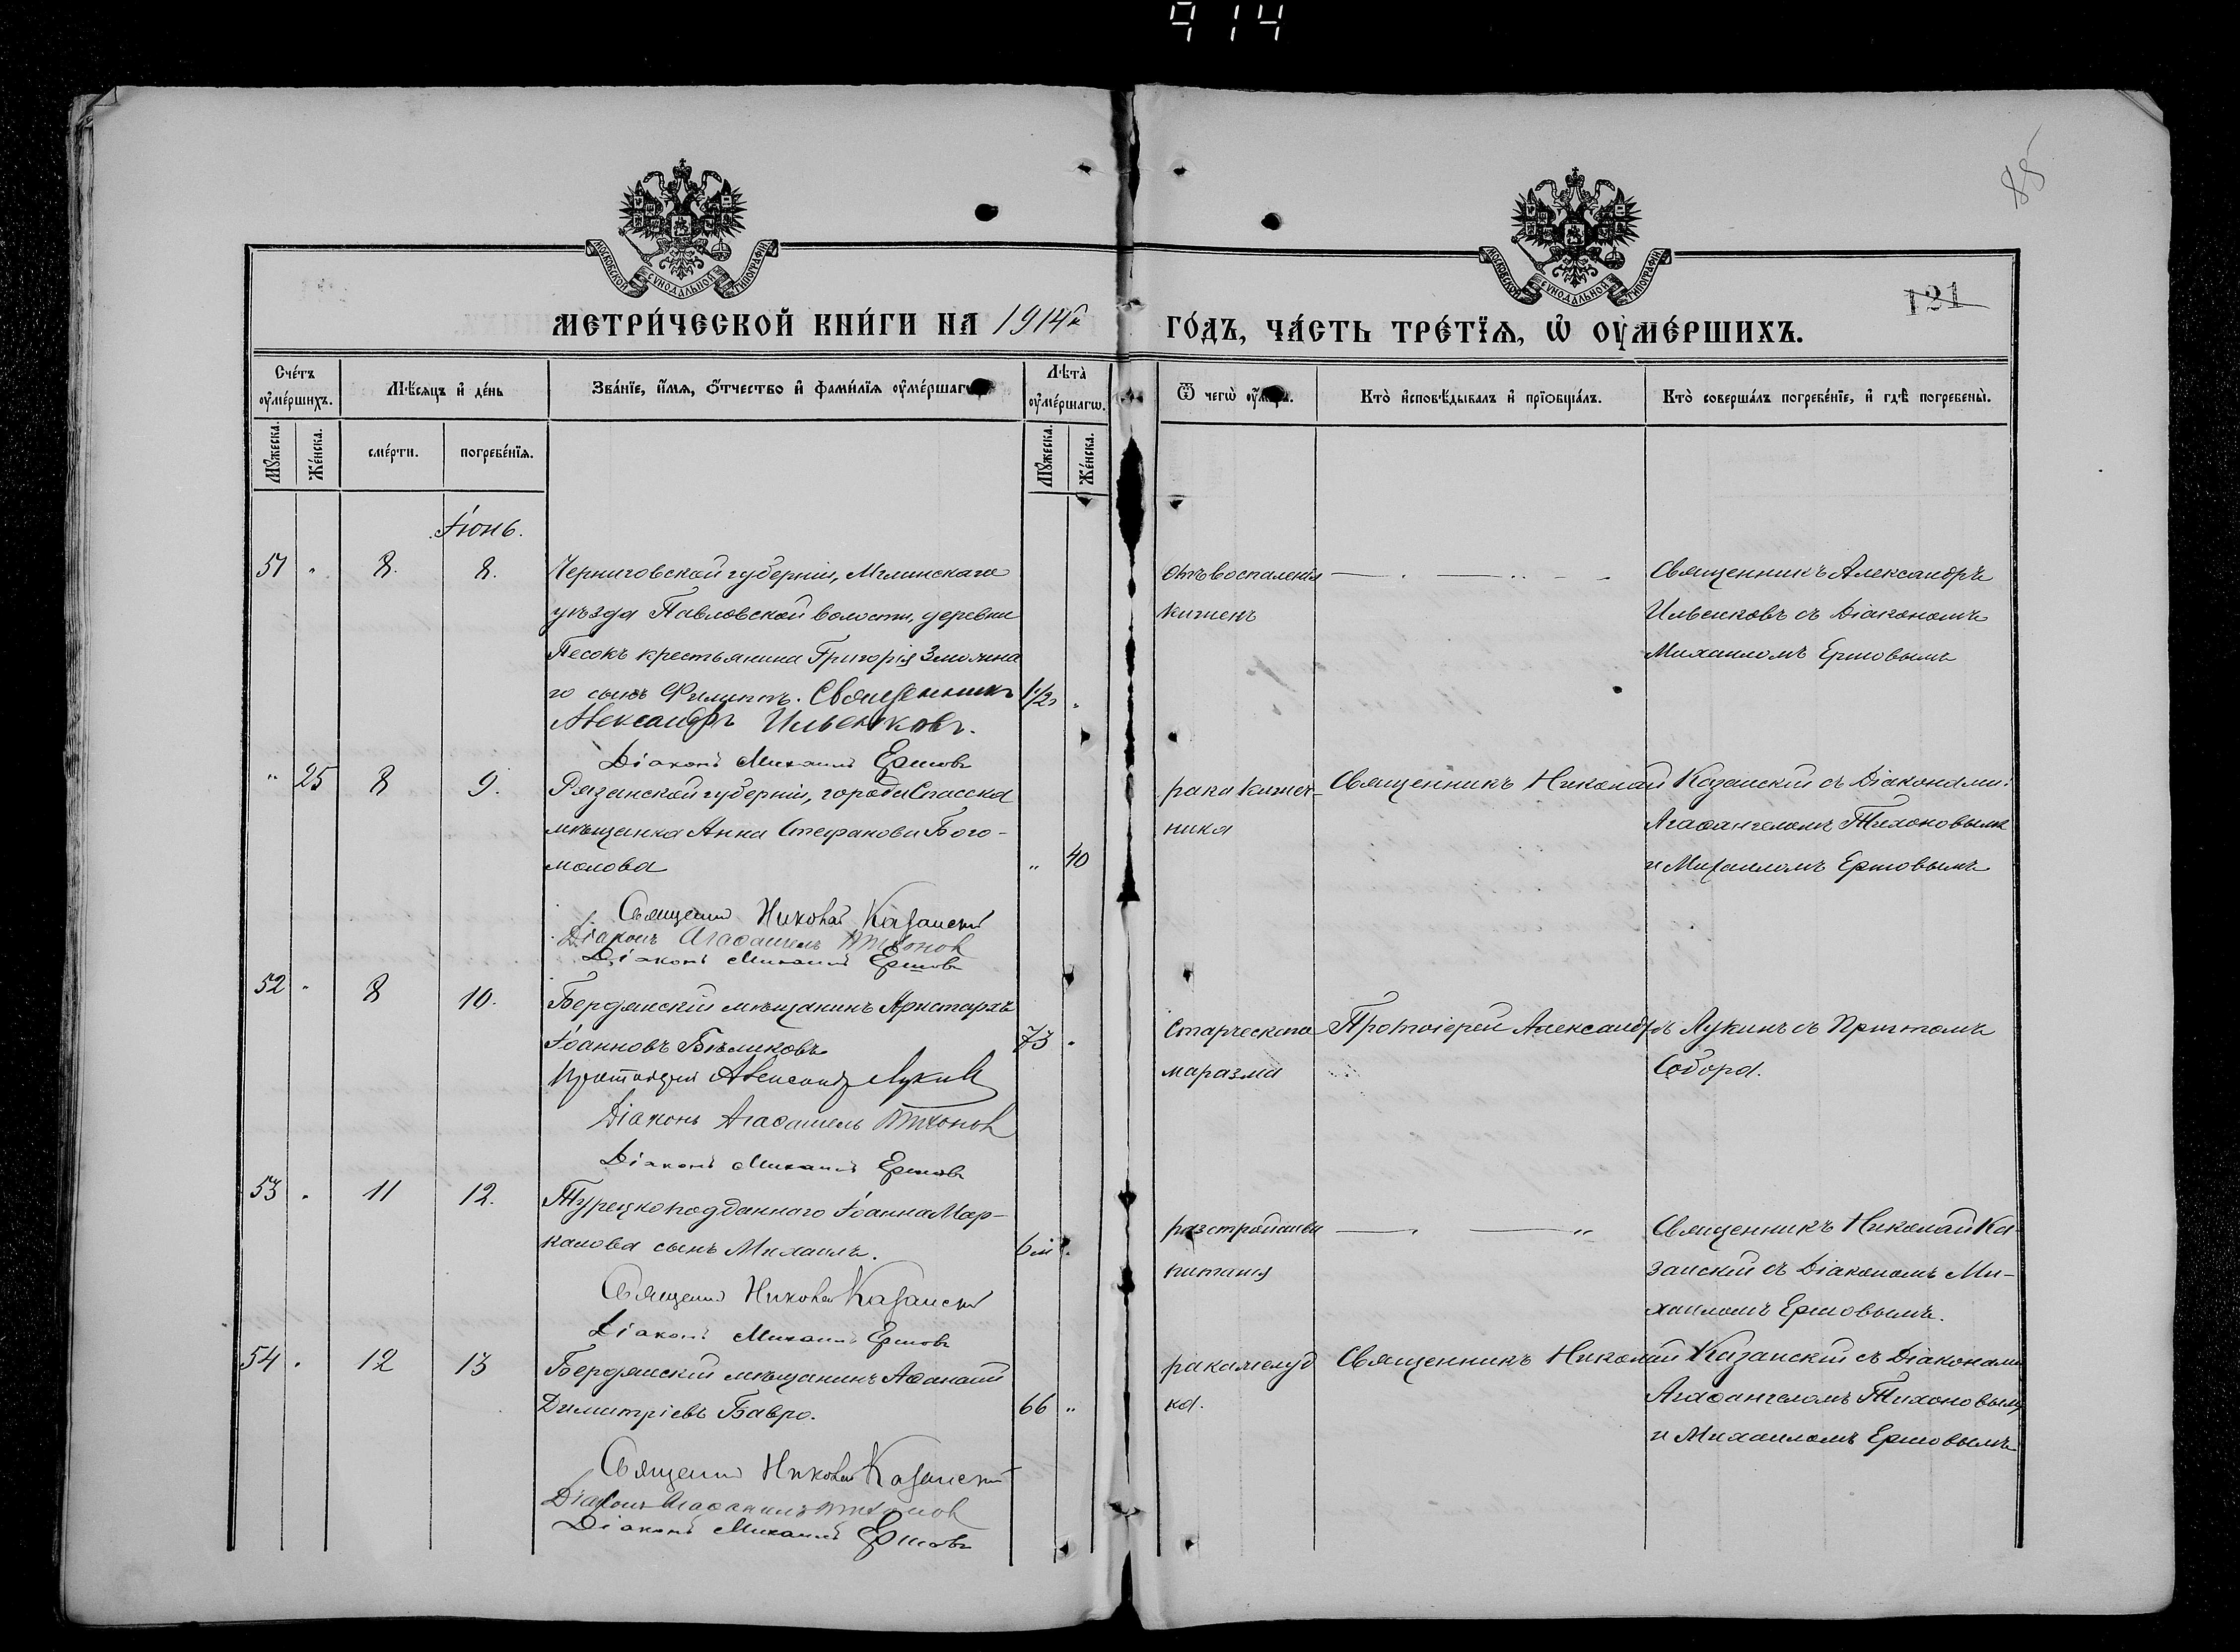 914
85
МОСКОВСКОЙ СѴНОДАЛЬНОЙ ТИПОГРАФІИ
МОСКОВСКОЙ СѴНОДАЛЬНОЙ ТИПОГРАФІИ
121
МЕТРИ́ЧЕСКОЙ КНИ́ГИ НА 1914й
ГО́ДЪ, ЧА́СТЬ ТРЕ́ТЇѦ, Ѡ҆ ОУ҆МЕ́РШИХЪ.
Сче́тъ оу҆ме́ршихъ.
Мѣ́сѧцъ и҆ де́нь
Зва́нїе, и҆́мѧ, ѻ҆́тчество и҆ фами́лїѧ оу҆ме́ршагѡ.
Лѣ́та оу҆ме́ршагѡ.
Ѿ чегѡ̀ оу҆́меръ.
Кто̀ и҆сповѣ́дывалъ и҆ прїѻбща́лъ.
Кто̀ соверша́лъ погребе́нїе, и҆ гдѣ̀ погребены̀.
Мꙋ́жеска.
Же́нска.
сме́рти.
погребе́нїѧ.
Мꙋ́жеска.
Же́нска.
Іюнь.
51 " 8. 8. Черниговской губерніи, Мглинскаго
уѣзда Павловской волости, деревни
Песокъ крестьянина Григорія
го сынъ Филиппъ. Священникъ 1/2 "
Александръ Ильенковъ.
Діаконъ Михаилъ Ершовъ
отъ воспаленія
кишекъ
Священникъ Александръ
Ильенковъ съ Діакономъ
Михаиломъ Ершовымъ
" 25 8 9. Рязанской губерніи, города Спасска
мѣщанка Анна Стефанова Бого-
молова " 40
Священникъ Николай Казанскій
Діаконъ Агаѳангелъ Тихонов
Діаконъ Михаилъ Ершовъ
рака кишеч-
ника
Священникъ Николай Казанскій съ Діаконами:
Агаѳангеломъ Тихоновымъ
и Михаиломъ Ершовымъ
52 " 8 10. Бердянскій мѣщанинъ Аристархъ
Іоанновъ Бѣликовъ 73 "
Протоіерей Александръ Лукинъ
Діаконъ Агаѳангелъ Тихонов
Діаконъ Михаилъ Ершовъ
Старческаго
маразма
Протоіерей Александръ Лукинъ съ Притомъ
Собора.
53 " 11 12. Турецкоподданнаго Іоанна Мар-
калова сынъ Михаилъ. 6 м.
Священникъ Николай Казанскій
Діаконъ Михаилъ Ершовъ
разстройства
питанія
Священникъ Николай Ка-
занскій съ Діакономъ Ми-
хаиломъ Ершовымъ.
54 " 12 13 Бердянскій мѣщанинъ Аѳанасій
Димитріевъ Бавро. 66 "
Священникъ Николай Казанскій
Діаконъ Агаѳангелъ Тихонов
Діаконъ Михаилъ Ершовъ
рака желуд
ка.
Священникъ Николай Казанскій съ Діаконами
Агаѳангеломъ Тихоновымъ
и Михаиломъ Ершовымъ